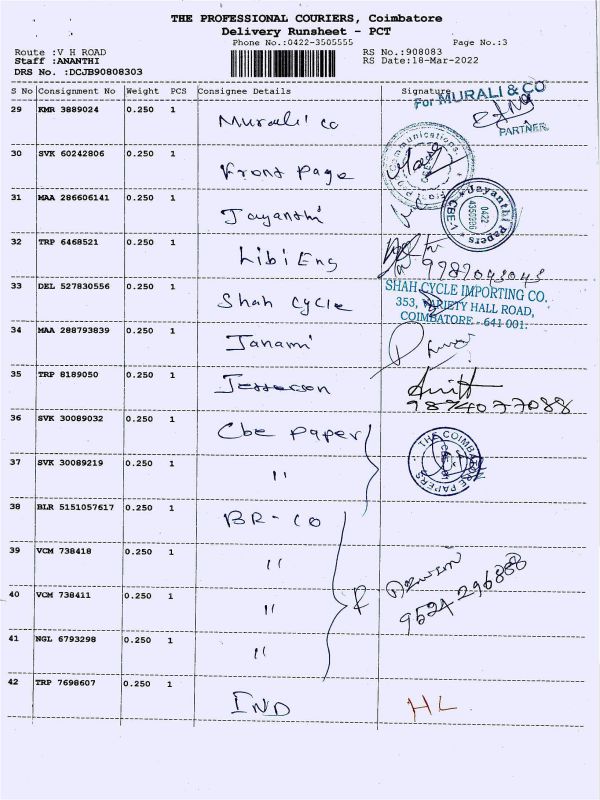 THE PROFESSIONAL COURIERS, Coimbatore
Delivery Runsheet - PCT
Phone No.:0422-3505555 Page No.:3
Route :V H ROAD RS No.:908083
Staff :ANANTHI RS Date:18-Mar-2022
DRS No. :DCJB90808303
S No Consignment No Weight PCS Consignee Details Signature
For MURALI & CO
PARTNER
29 KMR 3889024 0.250 1 Murali co
30 SVK 60242806 0.250 1 Front page
Communications
31 MAA 286606141 0.250 1 Jayanthi
Jayanthi Papers
0422
CBE-1
32 TRP 6468521 0.250 1 Libi Eng
33 DEL 527830556 0.250 1 Shah cycle
SHAH CYCLE IMPORTING CO.
353, VARIETY HALL ROAD,
COIMBATORE - 641 001.
34 MAA 288793839 0.250 1 Janani
35 TRP 8189050 0.250 1 Jefferson
9874077088
36 SVK 30089032 0.250 1 Cbe paper
THE COIMBATORE PAPERS
37 SVK 30089219 0.250 1 "
38 BLR 5151057617 0.250 1 BR-CO
39 VCM 738418 0.250 1 "
40 VCM 738411 0.250 1 "
9524296888
41 NGL 6793298 0.250 1 "
42 TRP 7698607 0.250 1 IND HL